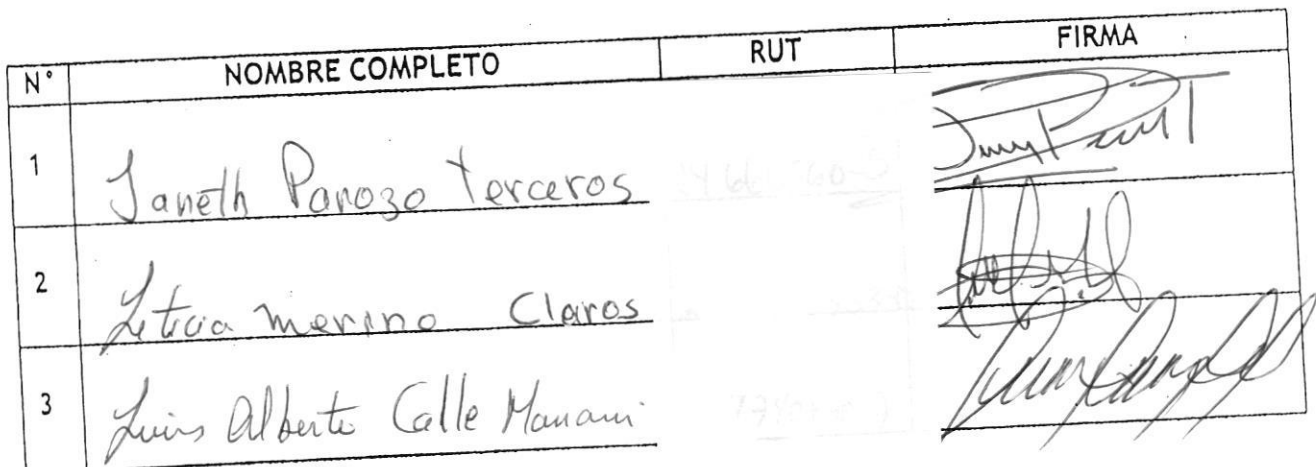 N° NOMBRE COMPLETO RUT FIRMA
1 Janeth Parozo Terceros
2 Leticia merino Claros
3 Luis Alberto Calle Mamani